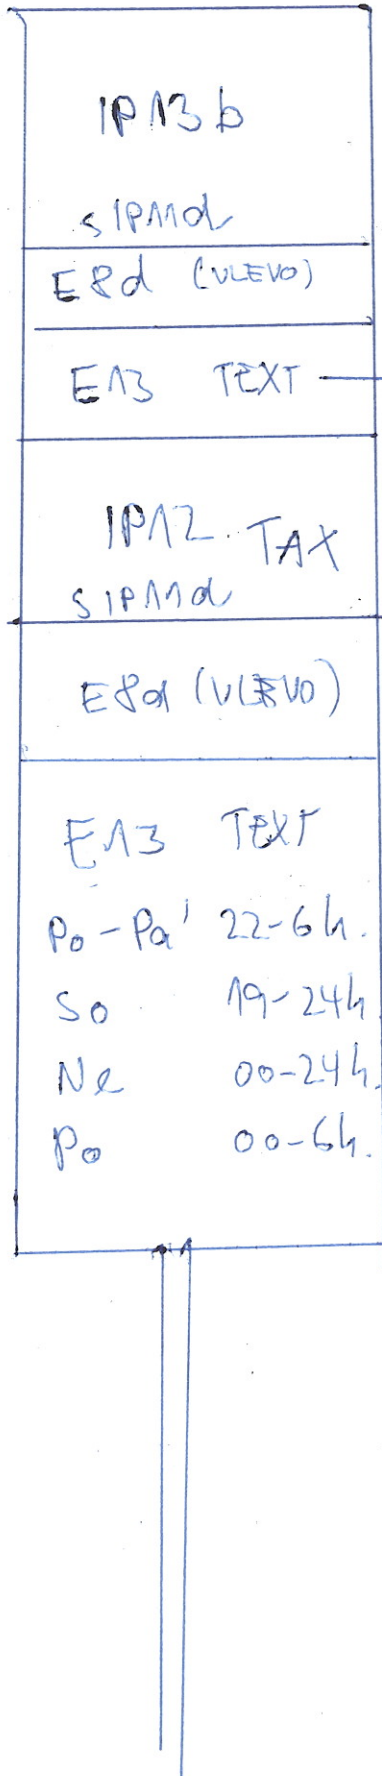 IP13b
s IP11d
E8d (VLEVO)
E13 TEXT
IP12 TAX
s IP11d
E8d (VLEVO)
E13 TEXT
Po-Pá 22-6h.
So 19-24h
Ne 00-24h.
Po 00-6h.